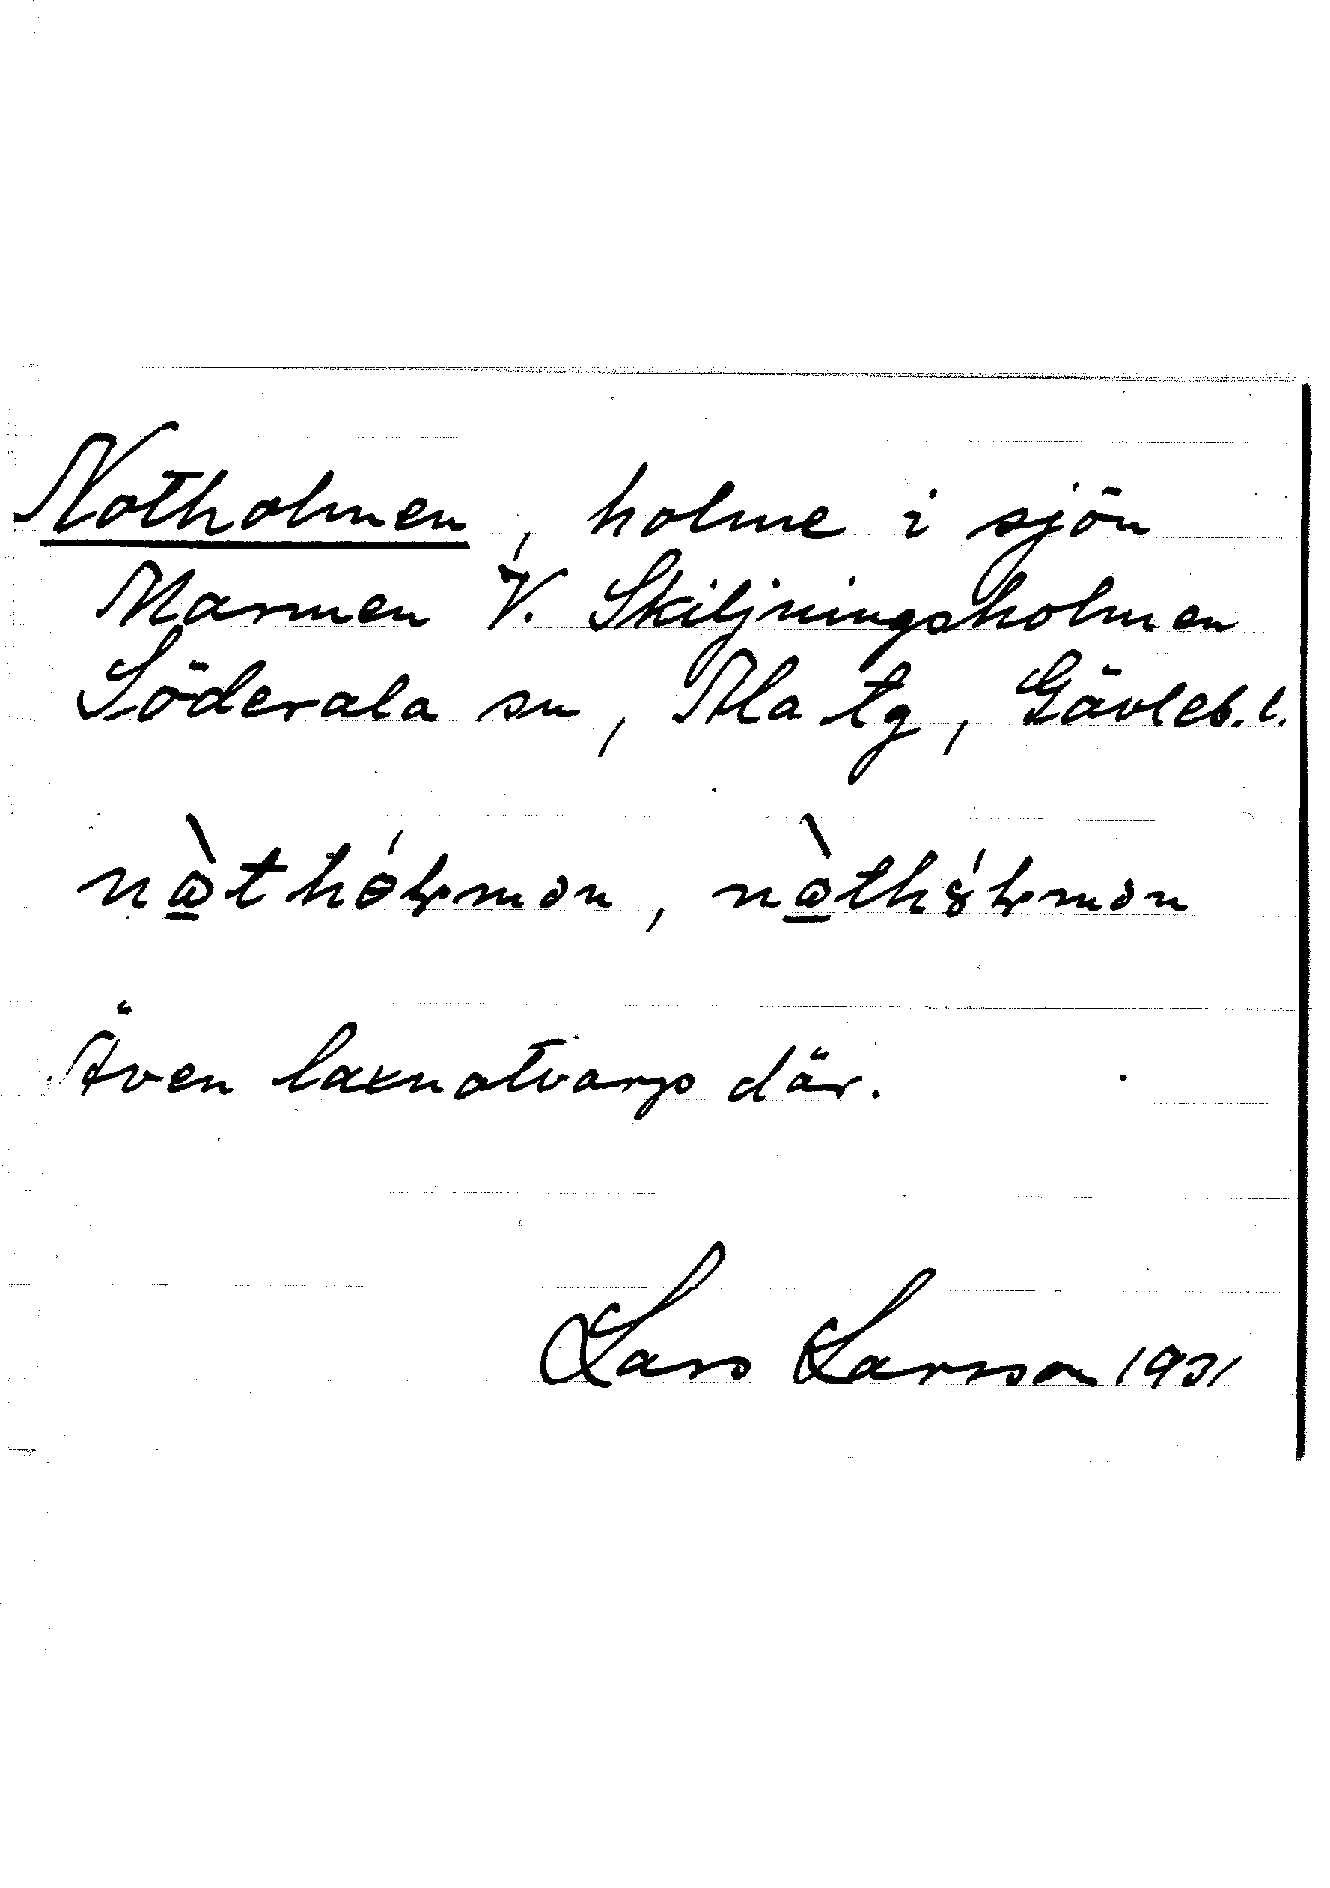 Notholmen, holme i sjön
Marmen V. Skiljningsholmen
Söderala sn, Ala tg, Gävleb. l.
Även laxnotvarp där.
Lars Larsson 1931